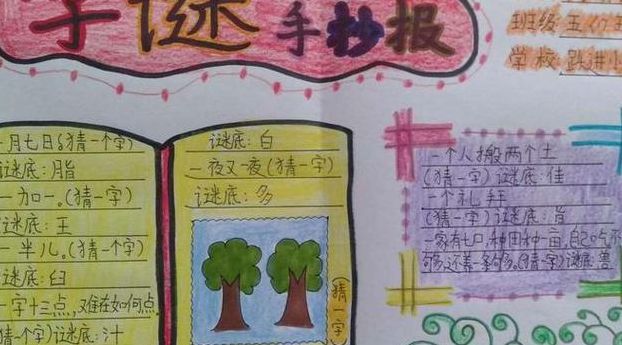 字谜手抄报
班级 五
学校 跃进小
一月七日(猜一个字)
谜底:脂
一加一。(猜一字)
谜底:王
一半儿。(猜一个字)
谜底:臼
一字十三点,难在如何点,
猜一个字)谜底:汁
谜底:白
一夜又一夜(猜一字)
谜底:多
(猜一字)
一个人搬两个土
(猜一字)谜底:佳
一个礼拜
(猜一字)谜底:旨
一家有七口,种田种一亩,自己吃不
够,还养一条狗。(猜一字)谜底:兽